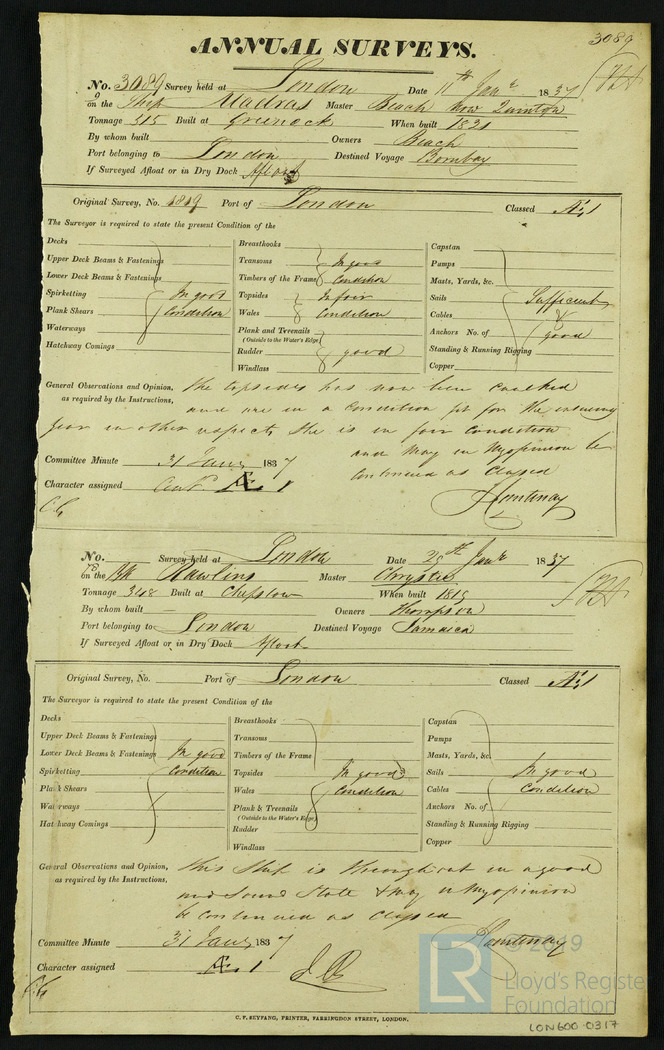 3089
ANNUAL SURVEYS.
No. 3089 Survey held at London Date 11th Jany 1837
on the Ship Madras Master Beach now
Tonnage 315 Built at Greenock When built 1821
By whom built Owners Beach
Port belonging to London Destined Voyage Bombay
If Surveyed Afloat or in Dry Dock Afloat
Original Survey, No. Port of London Classed Æ 1
The Surveyor is required to state the present Condition of the
Decks Breasthooks Capstan
Upper Deck Beams & Fastenings Transoms In good Pumps
Lower Deck Beams & Fastenings Timbers of the Frame Condition Masts, Yards, &c.
Spirketting In good Topsides In fair Sails Sufficient
Plank Shears Condition Wales Condition Cables &
Waterways Plank and Treenails Anchors No. of good
(Outside to the Water's Edge)
Hatchway Comings Rudder good Standing & Running Rigging
Windlass Copper
General Observations and Opinion, The topsides has now been caulked
as required by the Instructions, and are in a condition fit for the ensuing
year in other respects she is in fair condition
and may in my opinion be
continued as classed
Courtenay
Committee Minute 31 Jany 1837
Character assigned Contd Æ 1
No. Survey held at London Date 28th Jany 1837
on the Bk Rawlins Master Chrystie
Tonnage 348 Built at Chepstow When built 1815
By whom built Owners Thompson
Port belonging to London Destined Voyage Jamaica
If Surveyed Afloat or in Dry Dock Afloat
Original Survey, No. Port of London Classed Æ 1
The Surveyor is required to state the present Condition of the
Decks Breasthooks Capstan
Upper Deck Beams & Fastenings Transoms Pumps
Lower Deck Beams & Fastenings In good Timbers of the Frame Masts, Yards, &c.
Spirketting Condition Topsides In good Sails In good
Plank Shears Wales Condition Cables Condition
Waterways Plank & Treenails Anchors No. of
(Outside to the Water's Edge)
Hatchway Comings Rudder Standing & Running Rigging
Windlass Copper
General Observations and Opinion, This Ship is throughout in a good
as required by the Instructions, and sound State & may in my opinion
be continued as classed
Courtenay
Committee Minute 31 Jany 1837
Character assigned Æ 1
C. F. SEYFANG, PRINTER, FARRINGDON STREET, LONDON.
LR © 2019
Lloyd's Register
Foundation
LON600-0317